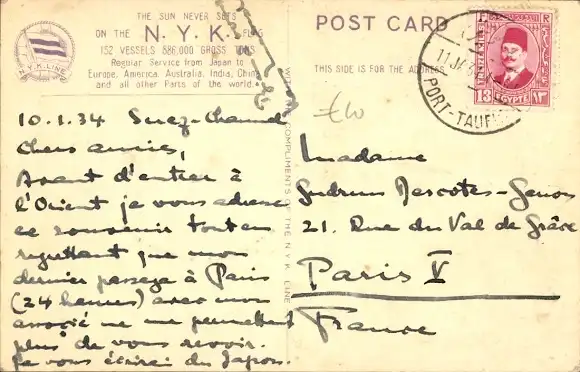 THE SUN NEVER SETS
ON THE N.Y.K. FLAG
152 VESSELS 886,000 GROSS TONS
Regular Service from Japan to
Europe, America, Australia, India, China
and all other Parts of the world.
N.Y.K. LINE
10.1.34 Suez-Channel
Chers amies,
Avant d'entrer à
l'Orient je vous adresse
ce souvenir tout en
regrettant que mon
dernier passage à Paris
(24 heures) avec mon
associé ne me permettent
plus de vous revoir.
Je vous écrirai du Japon.
WITH COMPLIMENTS OF THE N.Y.K. LINE
POST CARD
THIS SIDE IS FOR THE ADDRESS
£10
11 JA
PORT-TAUFI
13 EGYPTE ١٣
Madame
Gudrun Descotes-Genon
21. Rue du Val de Grâce
Paris V
France